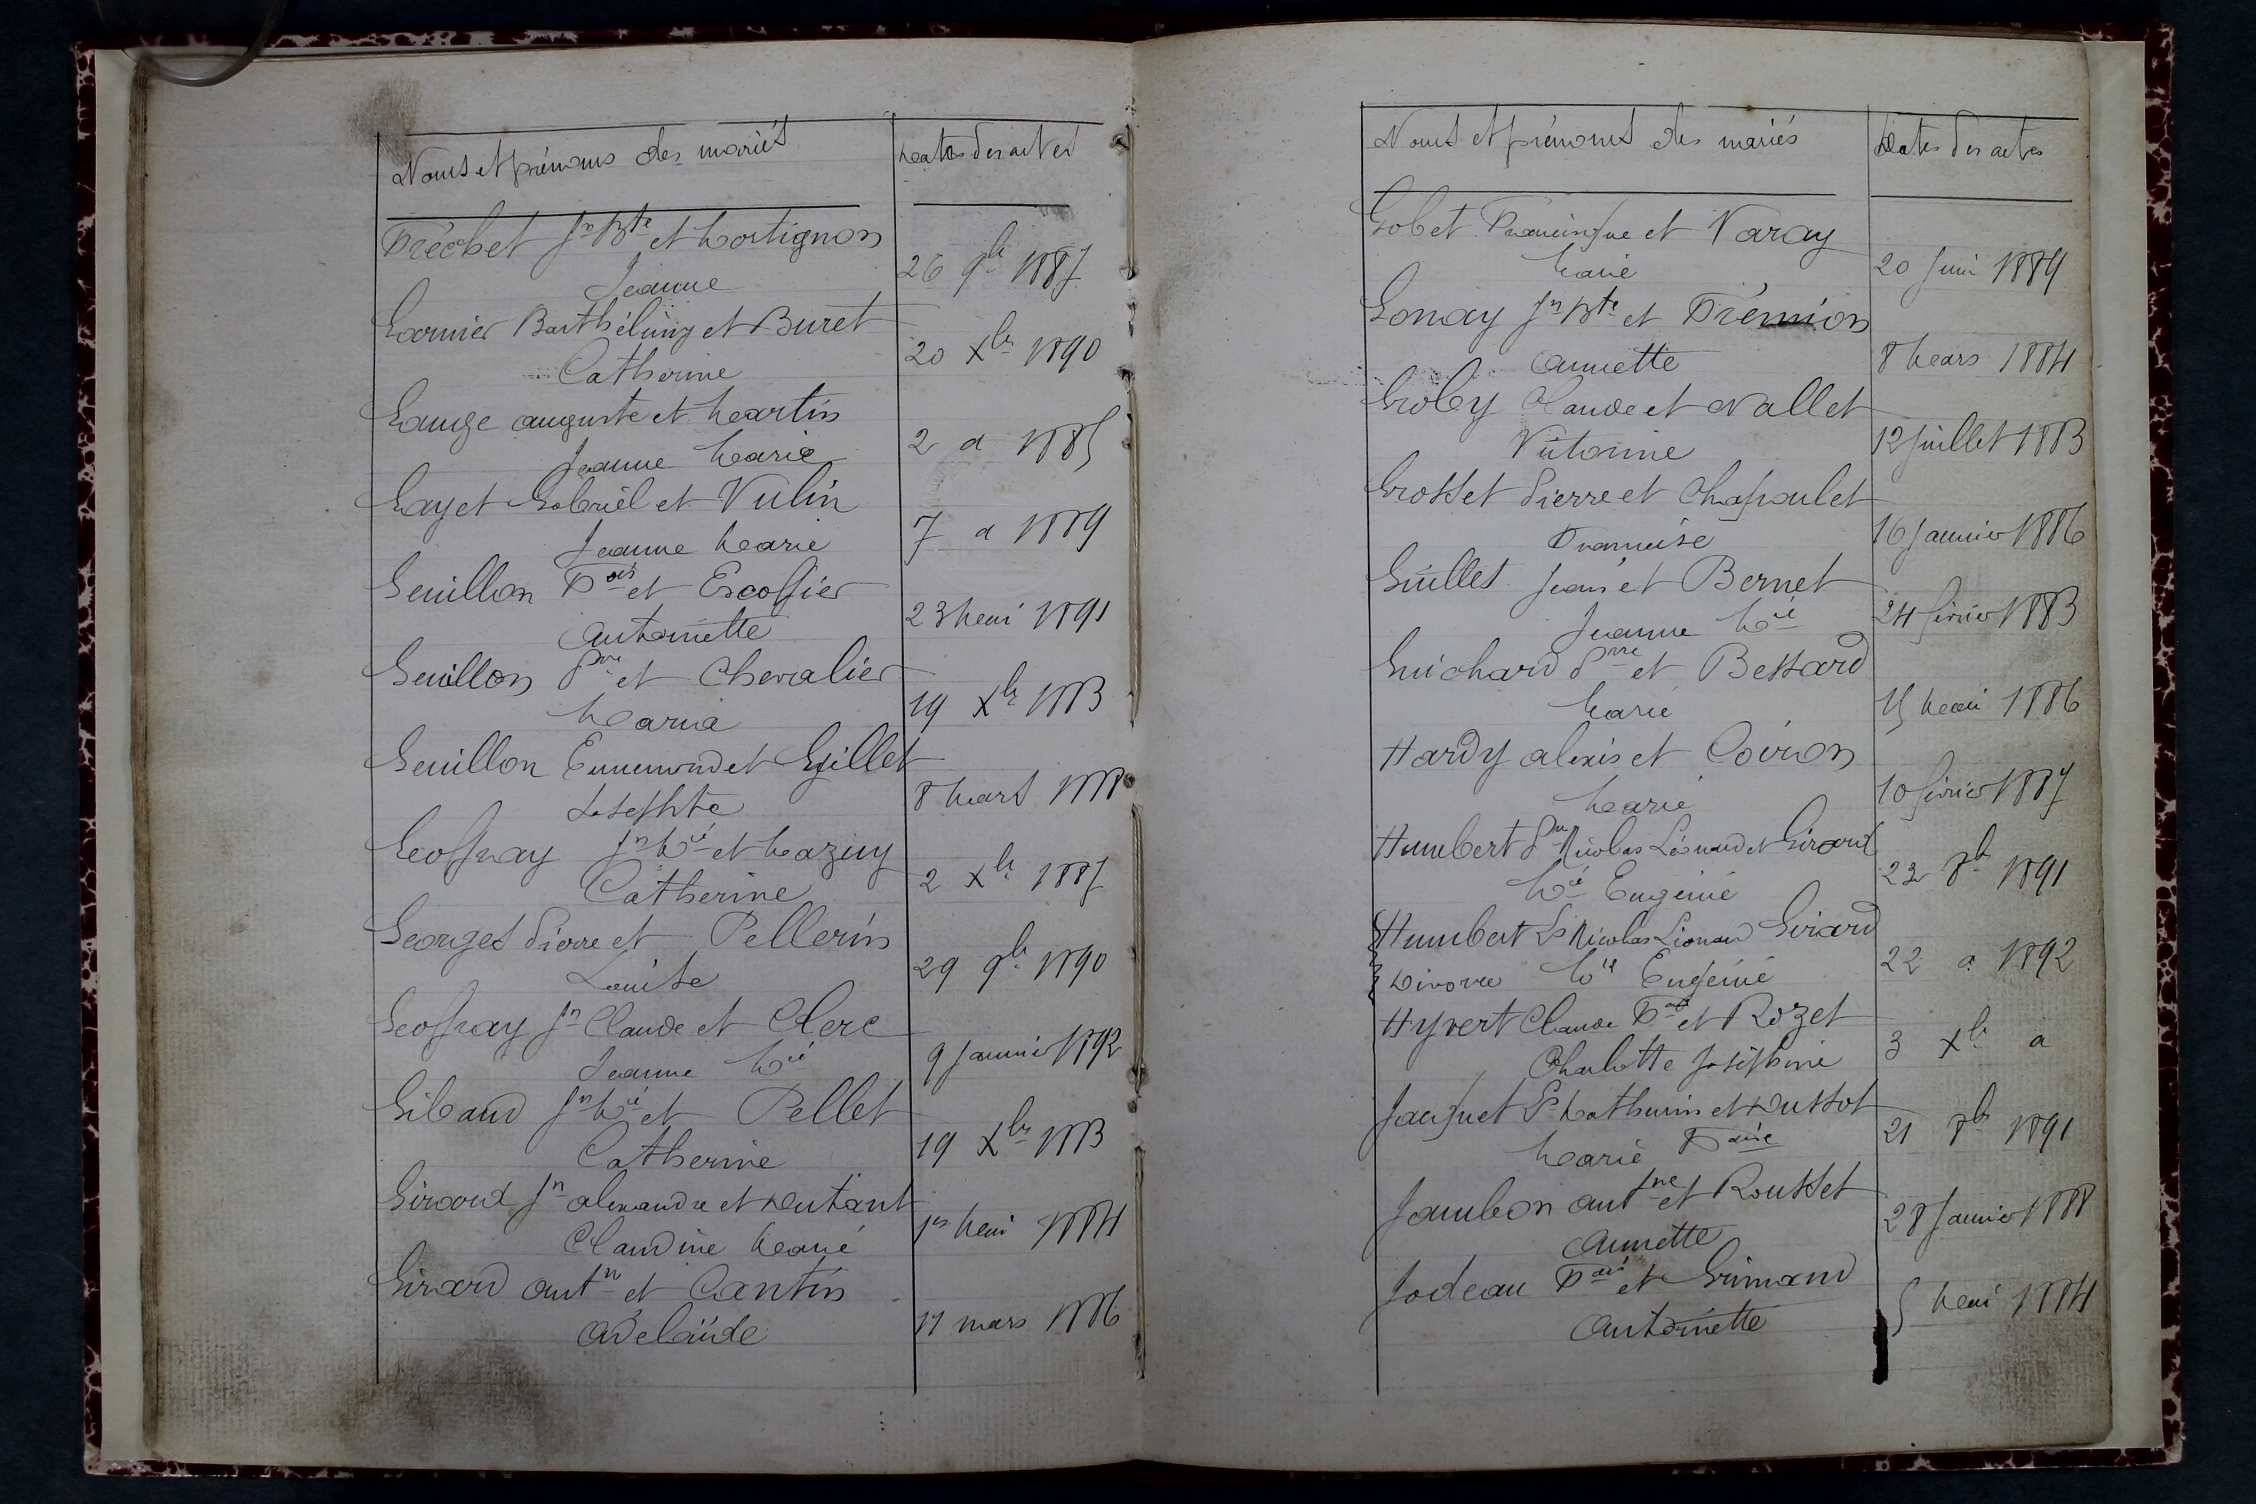 Noms et prénoms des mariés
Dates des actes
Fréchet Jn Bte et Mortignon
Jeanne
26 9bre 1887
Garnier Barthélémy et Buret
Catherine
20 Xbre 1890
Gauge auguste et Martin
Jeanne Marie
2 d 1885
Gayet Gabriel et Vulin
Jeanne Marie
7 d 1889
Genillon Fois et Escoffier
Antoinette
23 Mai 1891
Genillon Pre et Chevalier
Maria
19 Xbre 1883
Genillon Ennemond et Gillet
Josephte
8 Mars 1888
Geoffray Jn Mie et Mazuy
Catherine
2 Xbre 1885
Georges Pierre et Pellerin
Louise
29 9bre 1890
Geoffray Jn Claude et Clerc
Jeanne Mie
9 Janvier 1892
Gibaud Jn Mie et Pellet
Catherine
19 Xbre 1883
Giroud Jn alexandre et Dutant
Claudine Marie
1er Mai 1884
Girard antne et Cantin
Adelaïde
17 mars 1886
Noms et prénoms des mariés
Dates des actes
Gobet Francisque et Varay
Marie
20 Juin 1889
Gonay Jn Bte et Frémion
Annette
8 Mars 1884
Groby Claude et Vallet
Victorine
12 Juillet 1883
Grosset Pierre et Chapoulet
Francoise
16 Janvier 1886
Guillet Jean et Bernet
Jeanne Mie
24 février 1883
Guichard Pre et Bessard
Marie
15 Mai 1886
Hardy alexis et Coiron
Marie
10 février 1887
Humbert Pre Nicolas Léonard et Giroud
Mie Eugénie
22 8bre 1891
Humbert Ls Nicolas Léonard Girard
Divorce Mie Eugénie
22 d 1892
Hyvert Claude Fois et Rozet
Charlotte Joséphine
3 Xbre d
Jacquet Ls Mathurin et Dussot
Marie Foise
21 8bre 1891
Jambon antne et Rousset
Annette
28 Janvier 1888
Jodeau Fois et Grimaud
Antoinette
5 Mai 1884